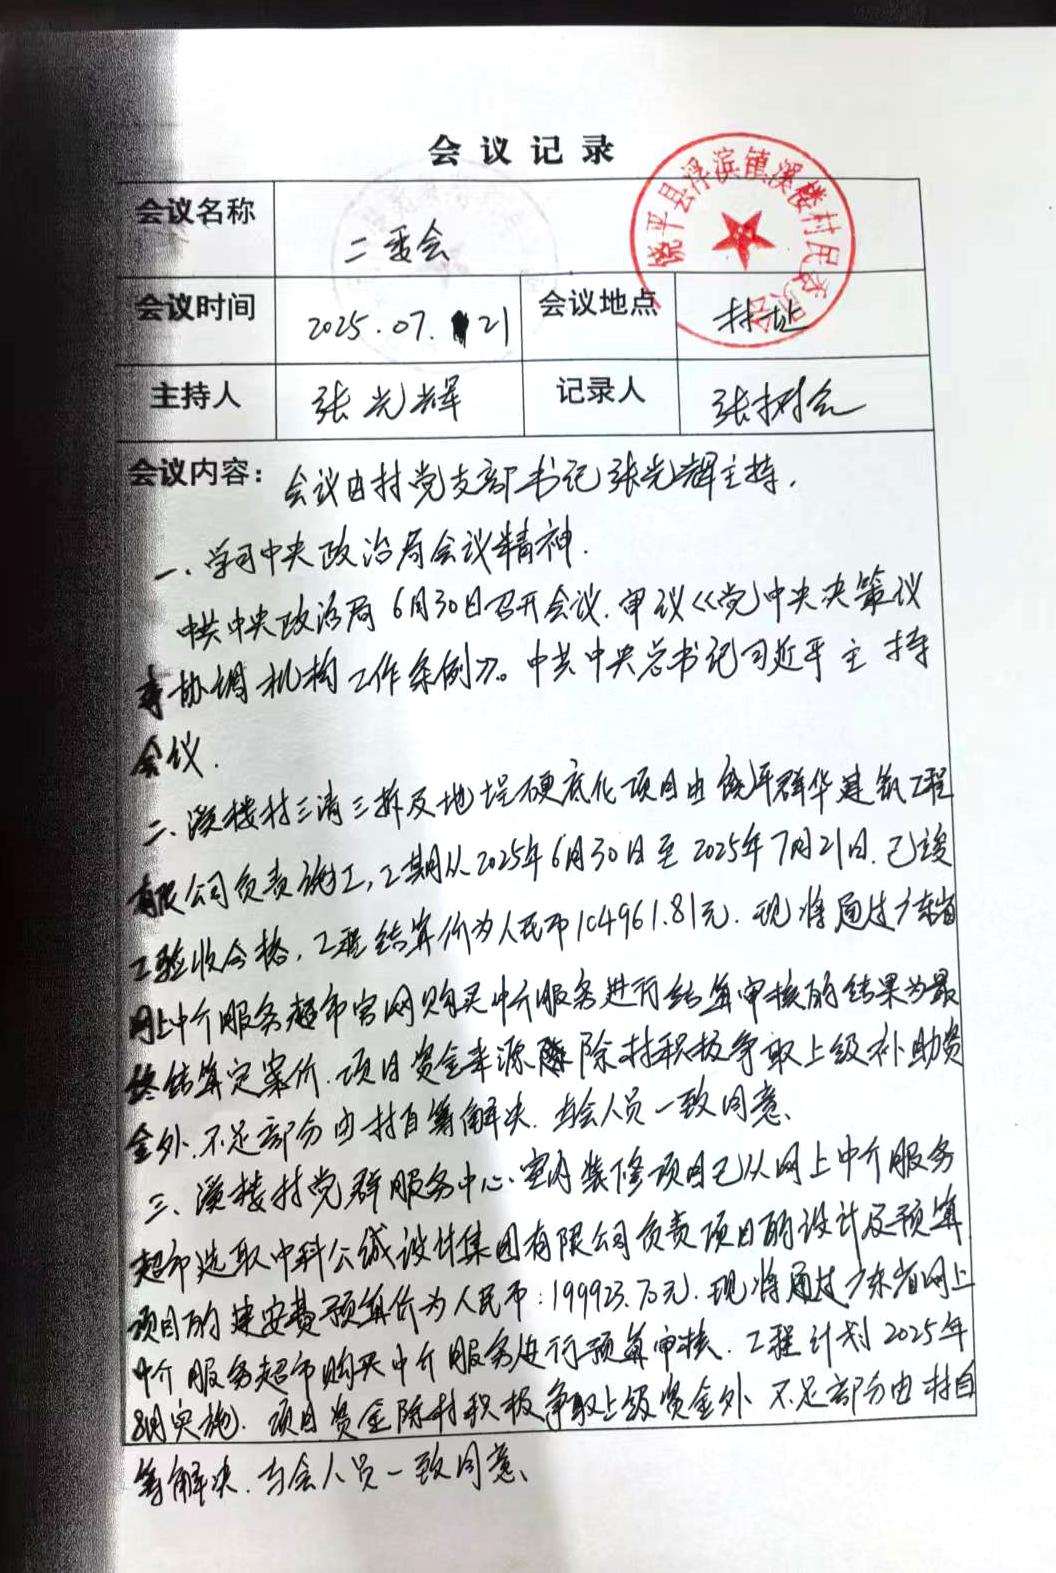 会议记录
饶平县浮滨镇溪楼村民委员会
会议名称 二委会
会议时间 2025.07.21 会议地点 村址
主持人 张光辉 记录人 张树
会议内容：会议由村党支部书记张光辉主持.
一、学习中央政治局会议精神.
中共中央政治局6月30日召开会议.审议《党中央决策议
事协调机构工作条例》。中共中央总书记习近平主持
会议.
二、溪楼村三清三拆及地埕硬底化项目由饶平群华建筑工程
有限公司负责施工,工期从2025年6月30日至2025年7月21日.已竣
工验收合格,工程结算价为人民币104961.81元.现将通过广东省
网上中介服务超市官网购买中介服务进行结算审核的结果为最
终结算定案价.项目资金来源除村积极争取上级补助资
金外.不足部分由村自筹解决.与会人员一致同意、
三、溪楼村党群服务中心室内装修项目已从网上中介服务
超市选取中科公诚设计集团有限公司负责项目的设计及预算
项目的建安费预算价为人民币:199923.70元.现将通过广东省网上
中介服务超市购买中介服务进行预算审核.工程计划2025年
8月实施.项目资金除村积极争取上级资金外 不足部分由村自
筹解决.与会人员一致同意、